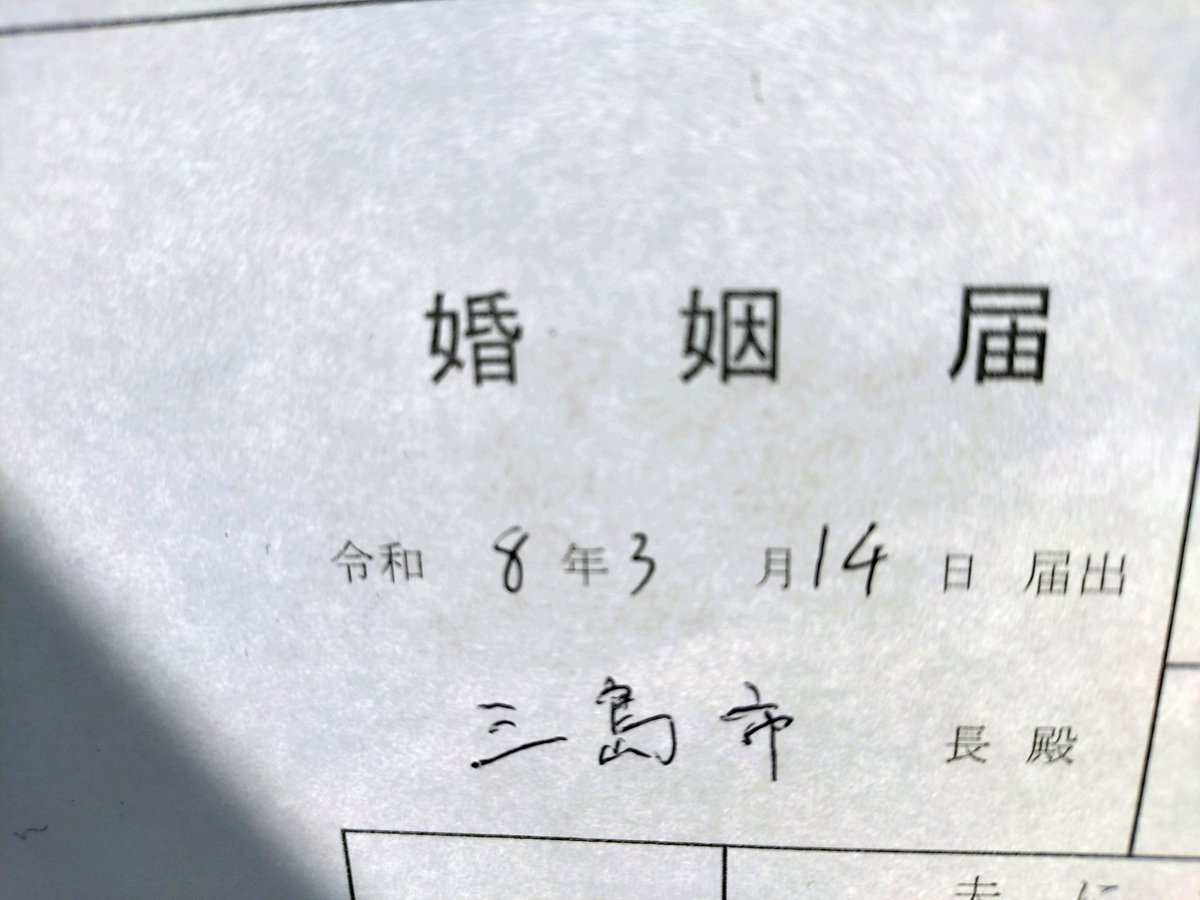 婚姻届
令和 8 年 3 月 14 日 届出
三島市 長 殿